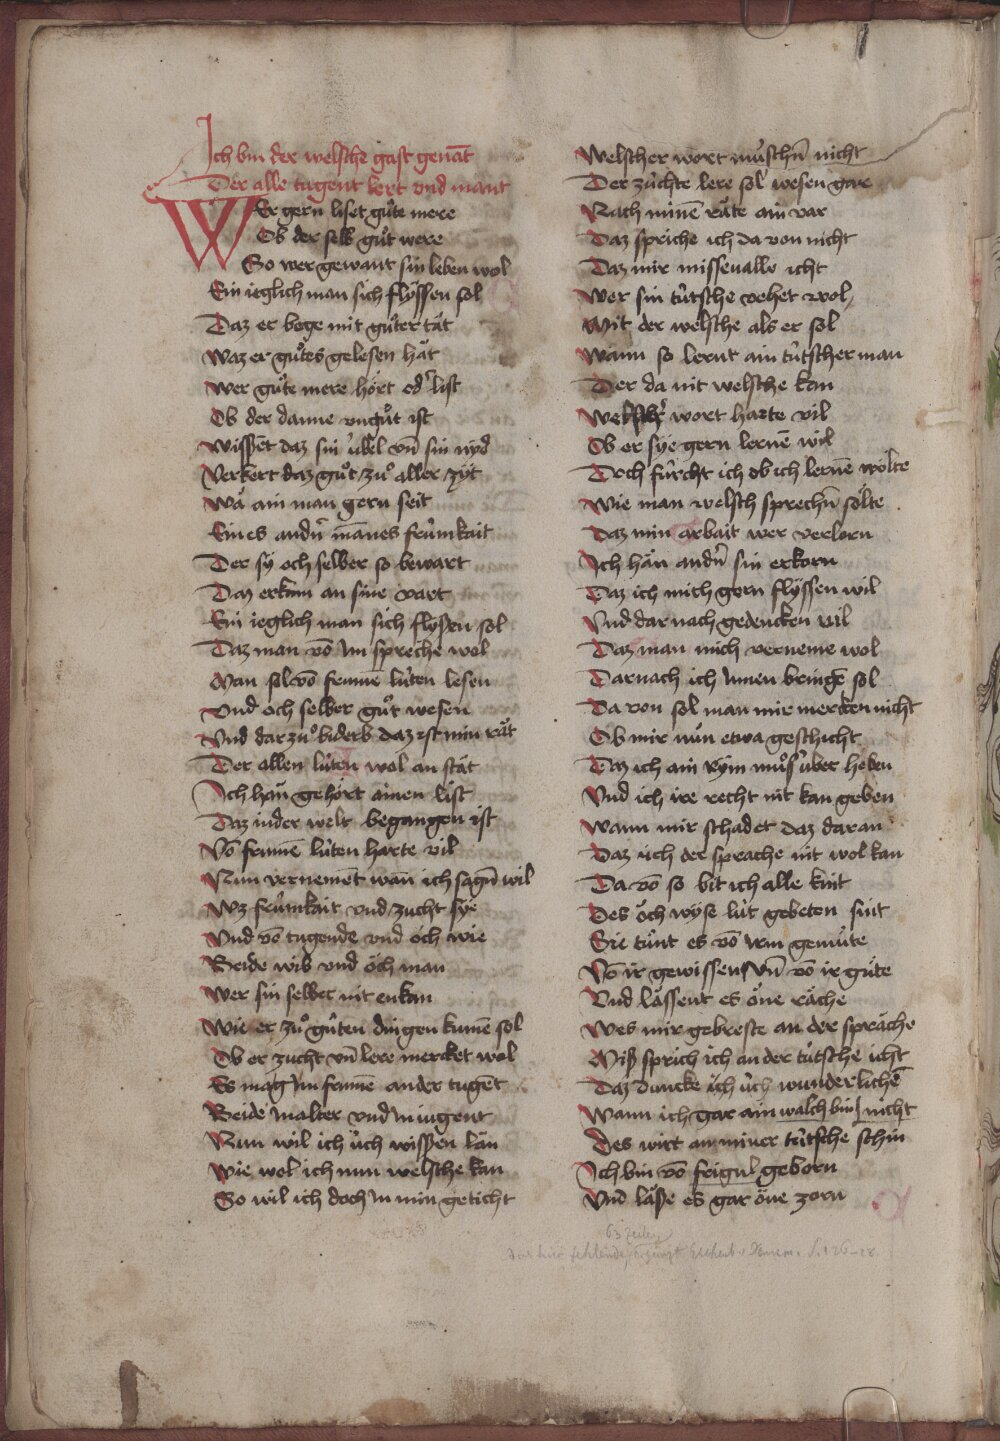 Ich bin der welsche gast genāt
Der alle tugent lert vnd mant
WEr gern liset gůte mere
Ob der selb gůt were
So wer gewant sin leben wol
Ein ieglich man sich flyssen sol
Daz er bege mit gůter tät
Waz er gůtes gelesen hät
Wer gůte mere hört odʼ list
Ob der danne vngůt ist
Wissēt daz sin v̈bel vn̄ sin nyd
Verkert daz gůt zů aller zyt
Wä ain man gern seit
Eines andʼn mānes frümkait
Der sy och selber so bewart
Daz er kum an sine vart
Ein ieglich man sich flyssen sol
Daz man vō im spreche wol
Man sol vō frumē lüten lesen
Vnd och selber gůt wesen
Vnd dar zů biderb daz ist min rät
Der allen lüten wol an stät
Ich han gehört ainen list
Daz in der welt begangen ist
Vō frumē lüten harte vil
Nun vernemēt wan̄ ich sagn̄ wil
Wz frümkait vnd zucht sye
Vnd vō tugende vnd och wie
Beide wib vnd öch man
Wer sin selber nit enkan
Wie er zů gůten dingen kumē sol
Ob er zucht vn̄ lere mercket wol
Es mag im frumē ander tugēt
Beide in alter vnd in iugent
Nun wil ich üch wissen län
Wie wol ich nun welsche kan
So wil ich doch in min geticht
Welscher wort müschn̄ nicht
Der züchte lere sol wesen gar
Nach minē räte ain var
Daz spriche ich da von nicht
Daz mir misseualle icht
Wer sin tütsche vehet wol
Mit der welsche als er sol
Wann so lernt ain tütscher man
Der da nit welsche kan
wort harte vil
Ob er sye gern lernē wil
Doch fürcht ich ob ich lernē wölte
Wie man welsch sprechn̄ sölte
Daz min arbait wer verlorn
Ich hän andʼn sin erkorn
Daz ich mich gern flyssen wil
Vnd dar nach gedencken vil
Daz man mich verneme wol
Darnach ich innen bringē sol
Da von sol man mir mercken nicht
Ob mir nün etwa geschicht
Daz ich ain rym můs v̈ber heben
Vnd ich ire recht nit kan geben
Wann mir schadet daz daran
Daz ich der sprache nit wol kan
Da vō so bit ich alle kint
Des öch wyse lüt gebeten sint
Sie tünt es vō irm gemüte
Vō ir gewissen vn̄ vō ir güte
Vnd lässent es öne räche
Wes mir gebreste an der spräche
Miß sprich ich an der tütsche icht
Daz duncke üch wunderlichē
Wann ich gar ain walch bin nicht
Des wirt an miner tütsche schin
Ich bin vō frigul geborn
Vnd lässe es gar öne zorn
63 Zeilen